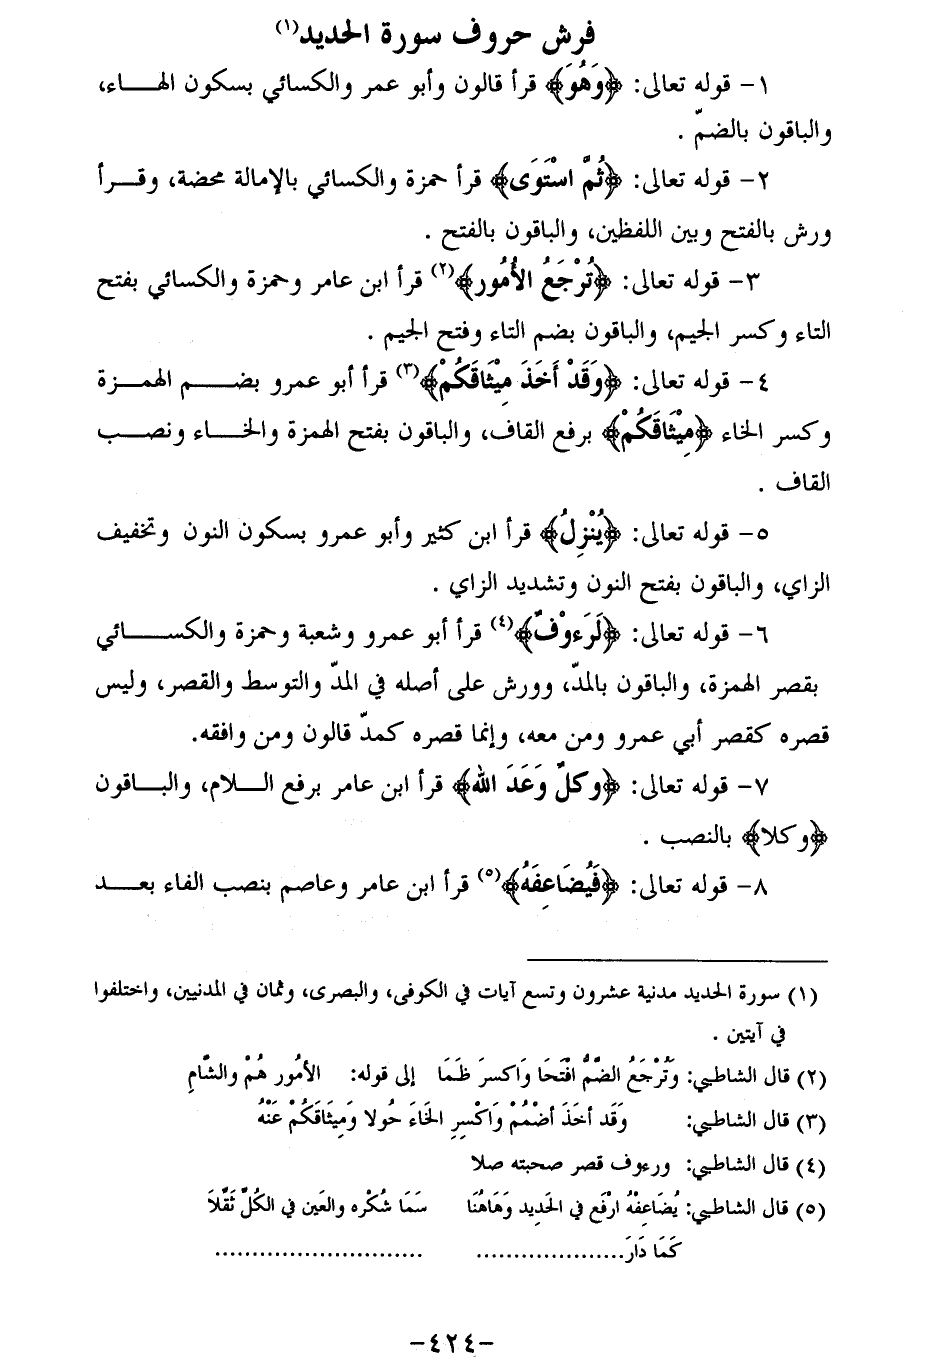 فرش حروف سورة الحديد(١)
١- قوله تعالى: ﴿وَهُوَ﴾ قرأ قالون وأبو عمر والكسائي بسكون الهاء،
والباقون بالضمّ .
٢- قوله تعالى: ﴿ثُمَّ اسْتَوَى﴾ قرأ حمزة والكسائي بالإمالة محضة، وقرأ
ورش بالفتح وبين اللفظين، والباقون بالفتح .
٣- قوله تعالى: ﴿تُرْجَعُ الأُمُور﴾(٢) قرأ ابن عامر وحمزة والكسائي بفتح
التاء وكسر الجيم، والباقون بضم التاء وفتح الجيم .
٤- قوله تعالى: ﴿وَقَدْ أَخَذَ مِيْثَاقَكُمْ﴾(٣) قرأ أبو عمرو بضم الهمزة
وكسر الخاء ﴿مِيْثَاقَكُمْ﴾ برفع القاف، والباقون بفتح الهمزة والخاء ونصب
القاف .
٥- قوله تعالى: ﴿يُنْزِلُ﴾ قرأ ابن كثير وأبو عمرو بسكون النون وتخفيف
الزاي، والباقون بفتح النون وتشديد الزاي .
٦- قوله تعالى: ﴿لَرَءوْفٌ﴾(٤) قرأ أبو عمرو وشعبة وحمزة والكسائي
بقصر الهمزة، والباقون بالمدّ، وورش على أصله في المدّ والتوسط والقصر، وليس
قصره كقصر أبي عمرو ومن معه، وإنما قصره كمدّ قالون ومن وافقه.
٧- قوله تعالى: ﴿وكلٌ وَعَدَ الله﴾ قرأ ابن عامر برفع اللام، والباقون
﴿وكلا﴾ بالنصب .
٨- قوله تعالى: ﴿فَيُضَاعِفَهُ﴾(٥) قرأ ابن عامر وعاصم بنصب الفاء بعد
(١) سورة الحديد مدنية عشرون وتسع آيات في الكوفى، والبصرى، وثمان في المدنيين، واختلفوا
في آيتين .
(٢) قال الشاطبي: وَتُرْجَعُ الضَّمُّ افْتَحَا وَاكسرَ ظَمَا إلى قوله: الأمُور هُمْ والشَّامِ
(٣) قال الشاطبي: وَقَد أخَذَ أضْمُمْ وَاكْسِرِ الخَاءَ حُولا وَمِيثَاقَكُمْ عَنْهُ
(٤) قال الشاطبي: ورءوف قصر صحبته صلا
(٥) قال الشاطبي: يُضَاعِفْهُ ارْفَع في الحَدِيد وَهَاهُنَا سَمَا شُكْره والعَين في الكُلّ ثَقَّلاَ
كَمَا دَارَ.................... ............................
-٤٢٤-